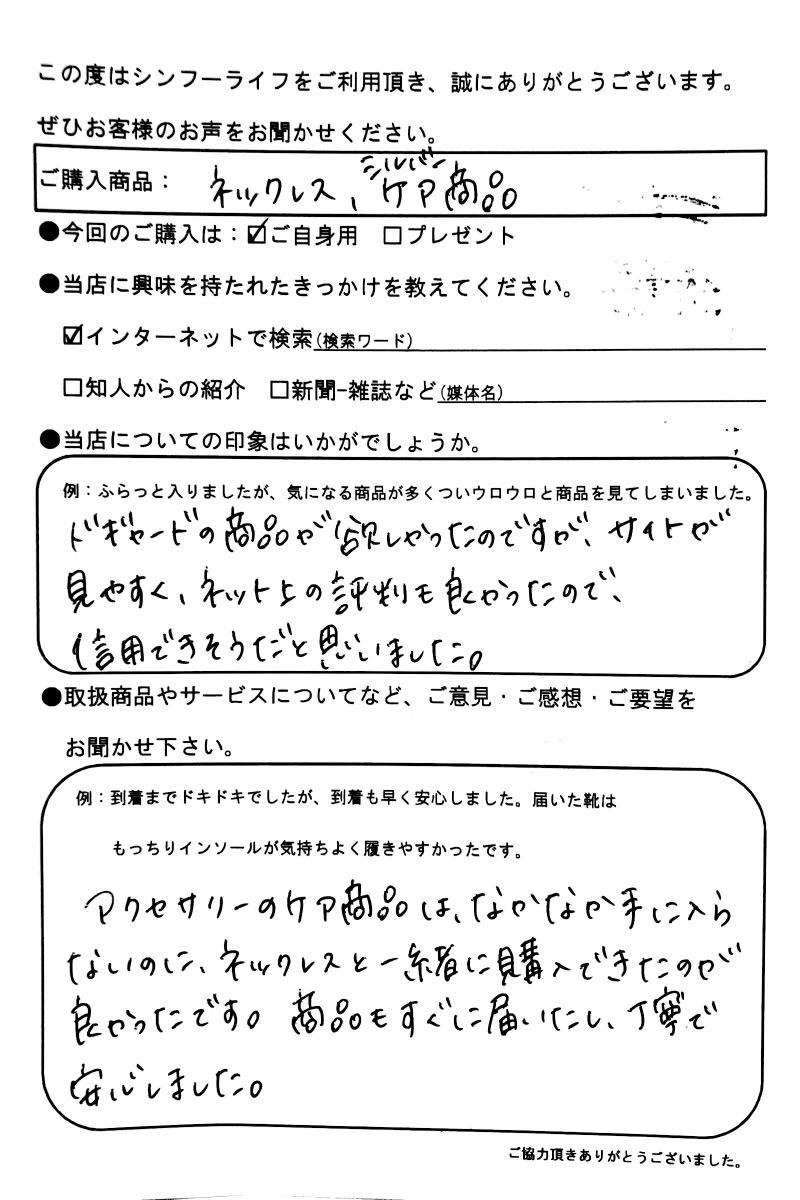 この度はシンフーライフをご利用頂き、誠にありがとうございます。
ぜひお客様のお声をお聞かせください。
ご購入商品： ネックレス、シルバーケア商品
●今回のご購入は：☑ご自身用 □プレゼント
●当店に興味を持たれたきっかけを教えてください。
☑インターネットで検索(検索ワード)
□知人からの紹介 □新聞-雑誌など(媒体名)
●当店についての印象はいかがでしょうか。
例：ふらっと入りましたが、気になる商品が多くついウロウロと商品を見てしまいました。
ドギャードの商品が欲しかったのですが、サイトが
見やすく、ネット上の評判も良かったので、
信用できそうだと思いました。
●取扱商品やサービスについてなど、ご意見・ご感想・ご要望を
お聞かせ下さい。
例：到着までドキドキでしたが、到着も早く安心しました。届いた靴は
もっちりインソールが気持ちよく履きやすかったです。
アクセサリーのケア商品は、なかなか手に入ら
ないのに、ネックレスと一緒に購入できたのが
良かったです。商品もすぐに届いたし、丁寧で
安心しました。
ご協力頂きありがとうございました。